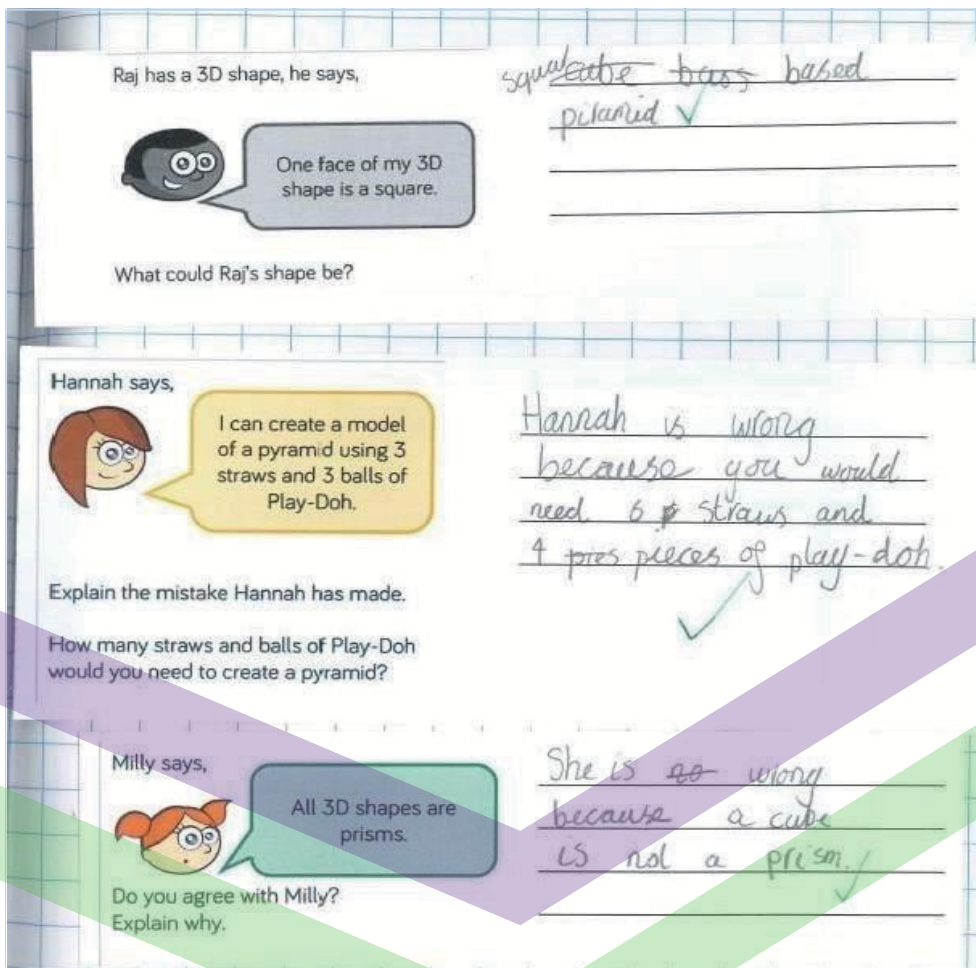 Raj has a 3D shape, he says,
One face of my 3D
shape is a square.
What could Raj's shape be?
square cube bass based
piramid
Hannah says,
I can create a model
of a pyramid using 3
straws and 3 balls of
Play-Doh.
Explain the mistake Hannah has made.
How many straws and balls of Play-Doh
would you need to create a pyramid?
Hannah is wrong
because you would
need 6 straws and
4 pres pieces of play-doh.
Milly says,
All 3D shapes are
prisms.
Do you agree with Milly?
Explain why.
She is no wrong
because a cube
is not a prism.